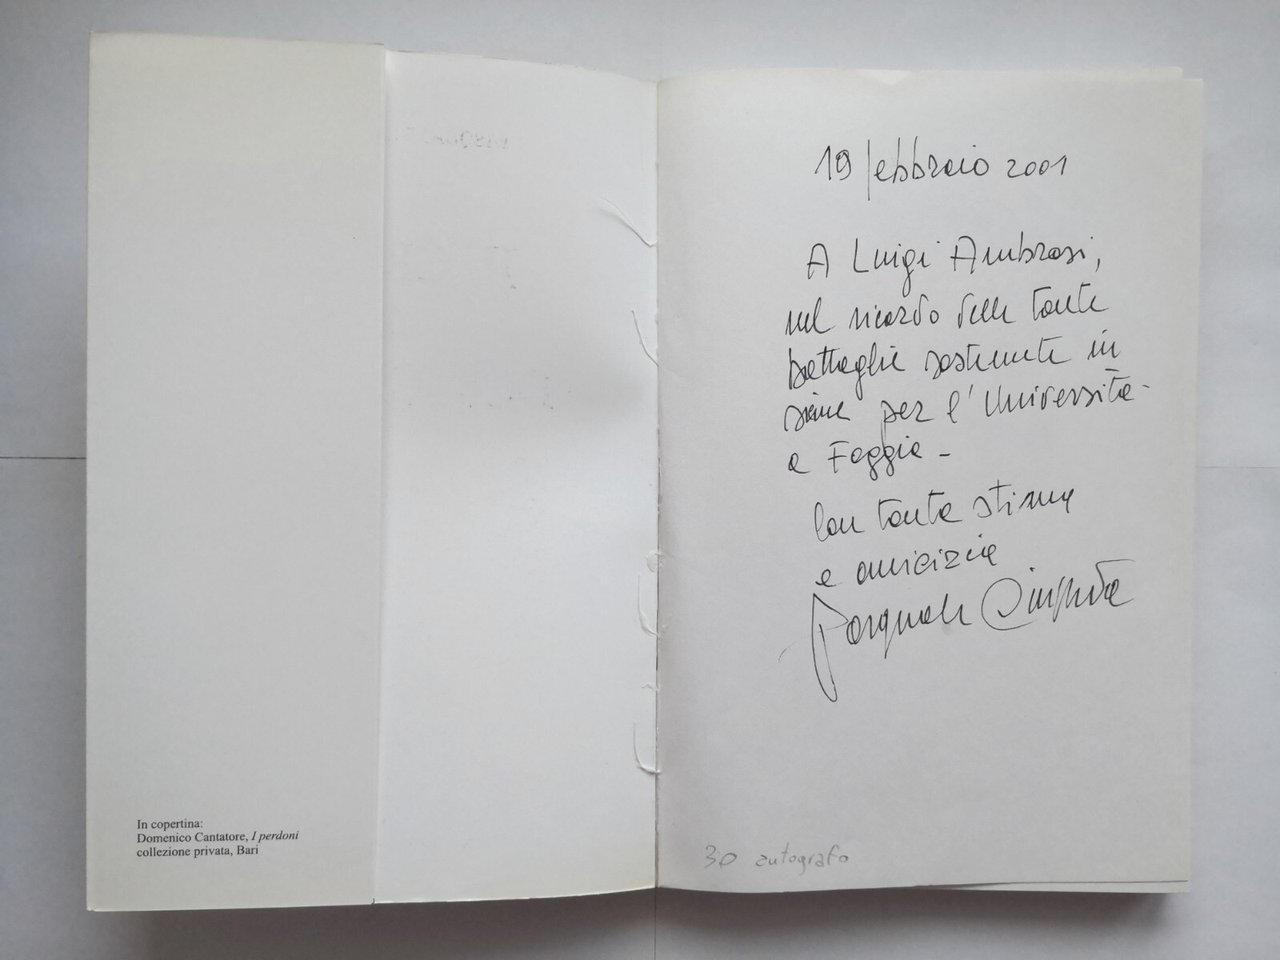 In copertina:
Domenico Cantatore, I perdoni
collezione privata, Bari
19 febbraio 2001
A Luigi Ambrosi,
nel ricordo delle tante
battaglie sostenute in
sieme per l'Università
a Foggia -
Con tanta stima
e amicizia
Pasquale
30 autografo